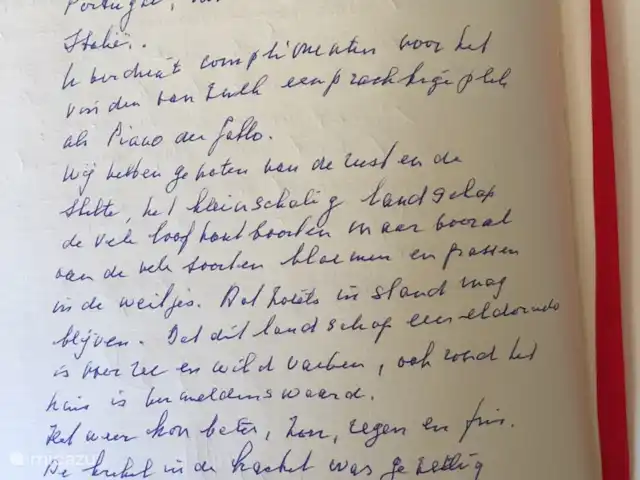 Portugal,
Italië.
U verdient complimenten voor het
vinden van zulk een prachtige plek
als Piano del Gallo.
Wij hebben genoten van de rust en de
stilte, het kleinschalig landschap
de vele loofhoutsoorten maar vooral
van de vele soorten bloemen en grassen
in de weitjes. Dat zoiets in stand mag
blijven. Dat dit landschap een eldorado
is voor ree en wild varken, ook rond het
huis is vermeldenswaard.
Het weer kon beter, zon, regen en fris.
De kachel was gezellig
micazu